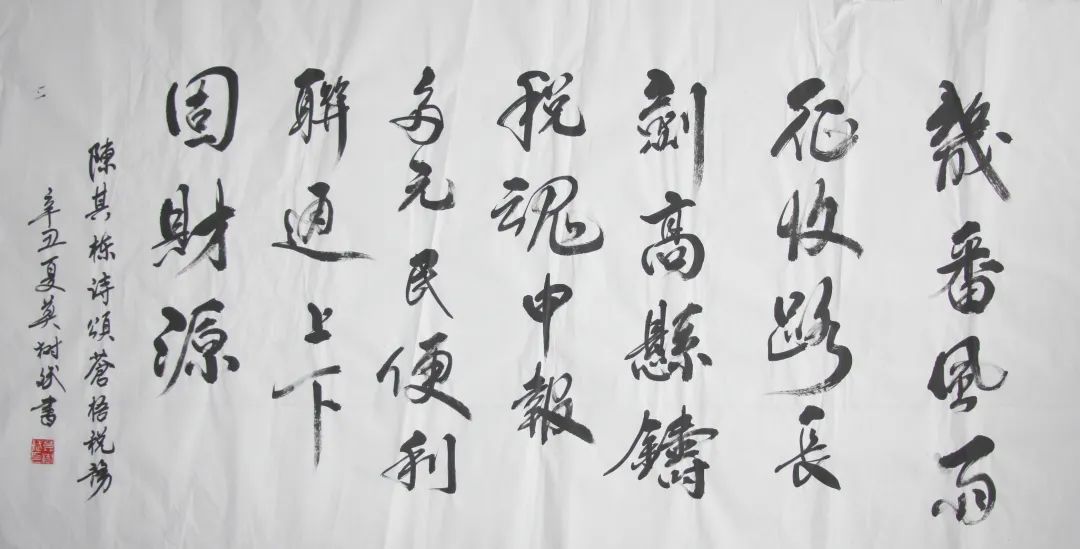 幾番風雨
征收路長
劍高懸鑄
税魂申報
多元民便利
聯通上下
固財源
陳其栋诗頌蒼梧税務
辛丑夏莫树
書
二